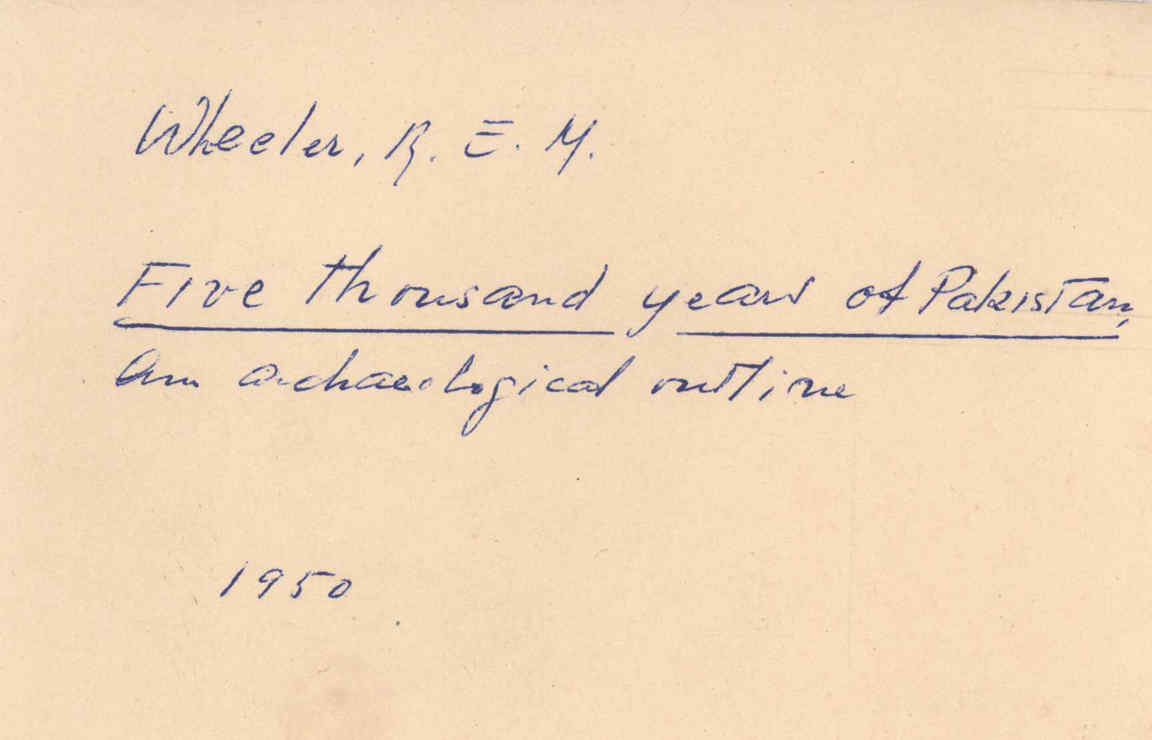 Wheeler, R. E. M.
Five thousand years of Pakistan,
An archaeological outline
1950